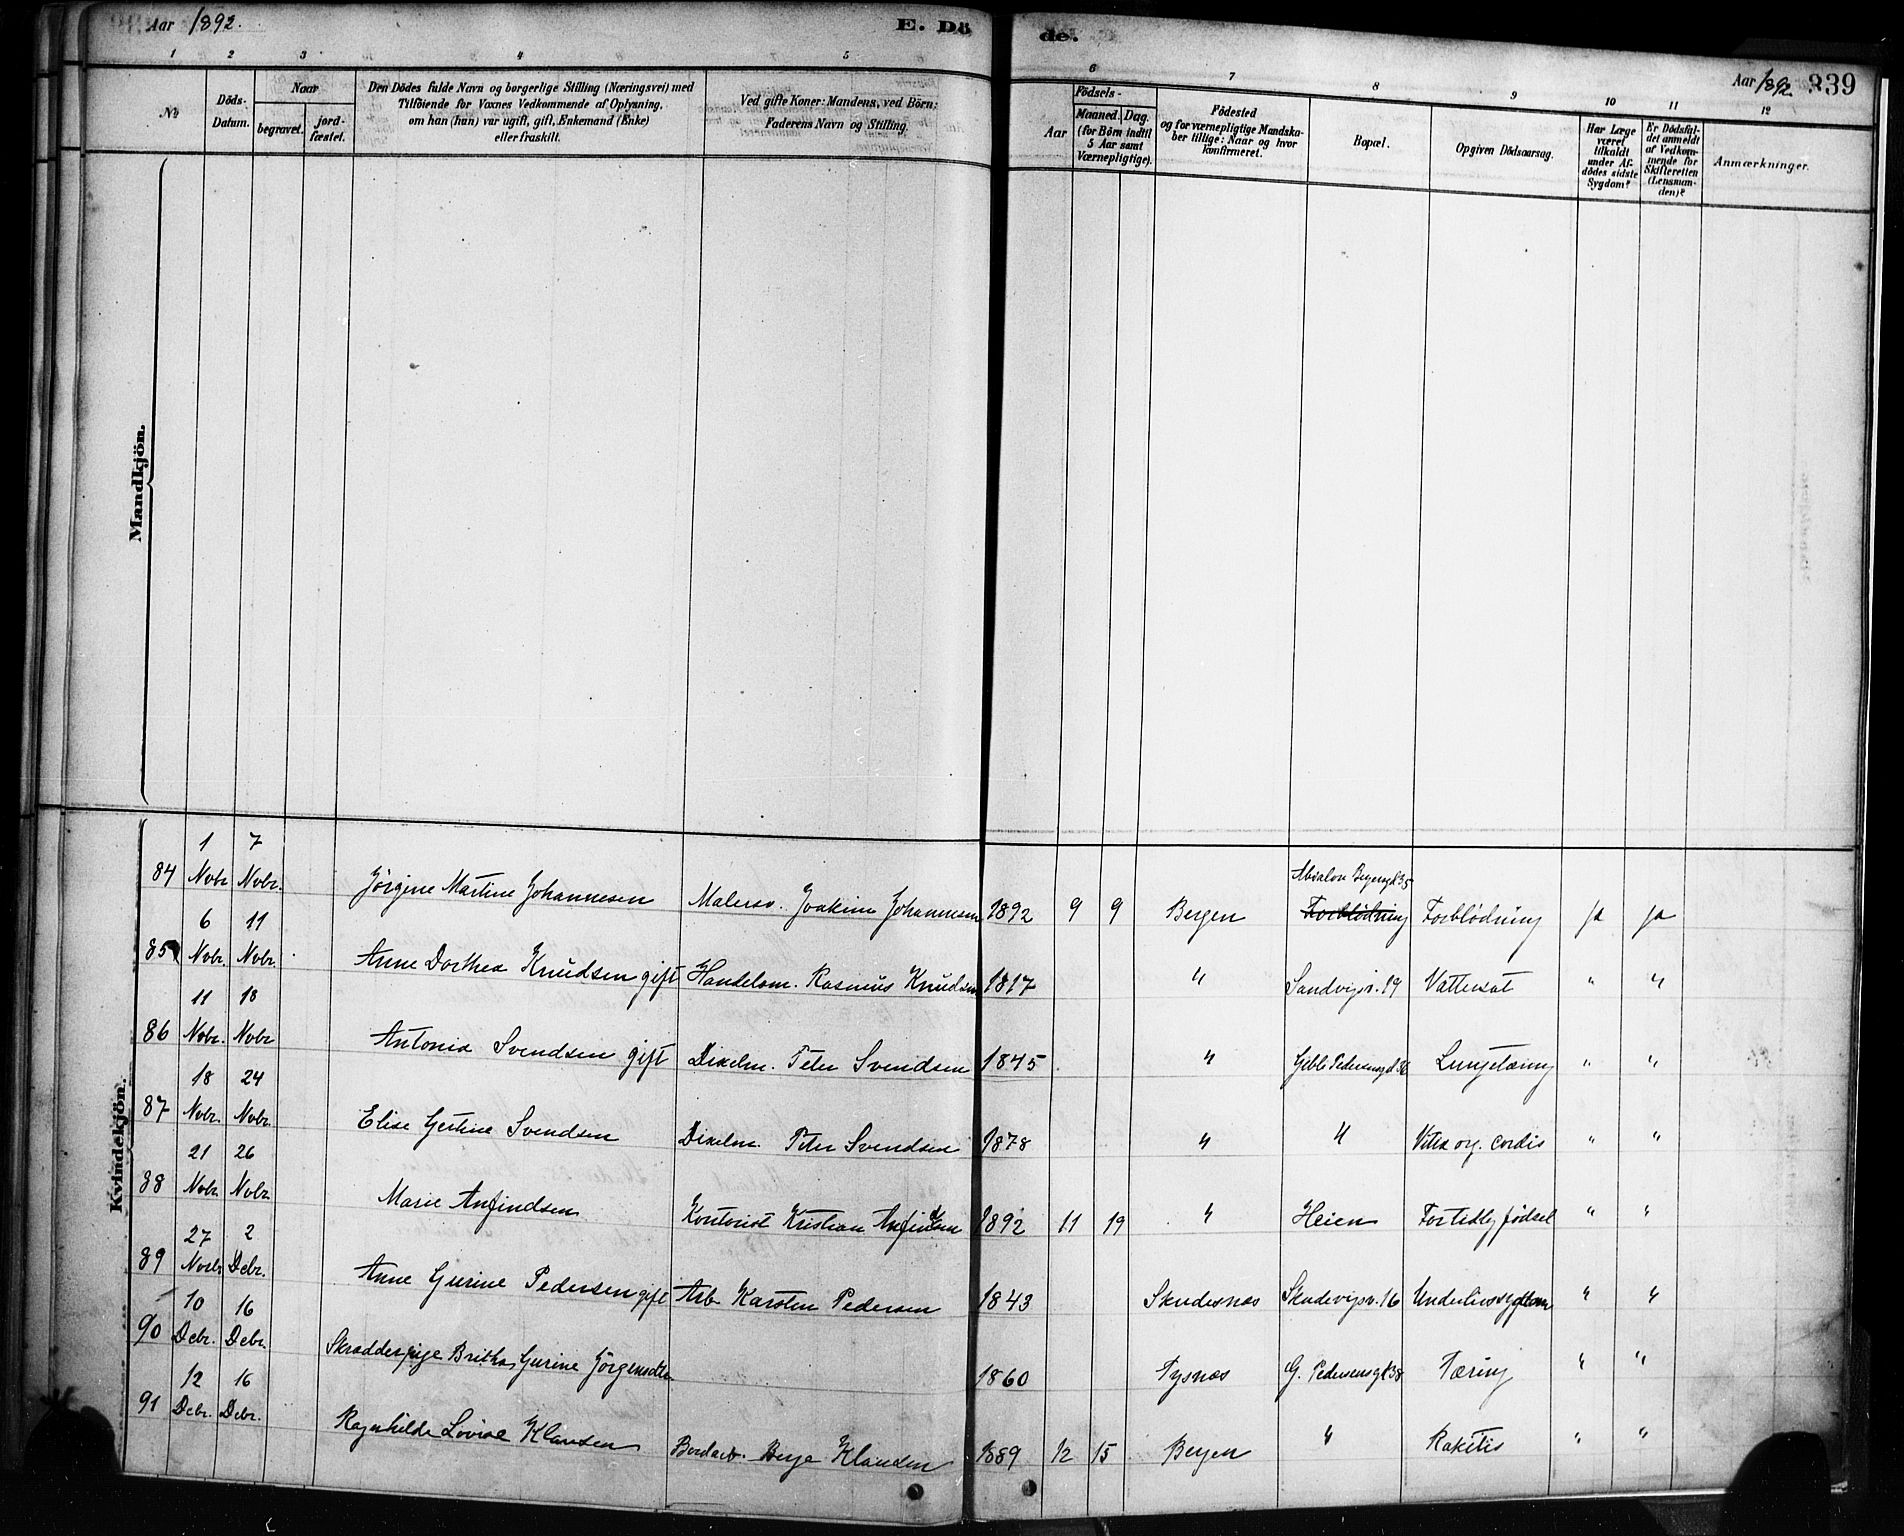 Aar 1892. E. Dö de. Aar 1892 339
1 2 3 4 5 6 7 8 9 10 11 12
No
Döds-Datum.
Naar
begravet. jord-fæstet.
Den Dödes fulde Navn og borgerlige Stilling (Næringsvei) med
Tilföiende for Voxnes Vedkommende af Oplysning,
om han (hun) var ugift, gift, Enkemand (Enke)
eller fraskilt.
Ved gifte Koner: Mandens, ved Börn:
Faderens Navn og Stilling.
Födsels-
Aar Maaned. Dag.
(for Börn indtil
5 Aar samt
Værnepligtige).
Födested
og for værnepligtige Mandska-
ber tillige: Naar og hvor
konfirmeret.
Bopæl.
Opgiven Dödsaarsag.
Har Læge
været
tilkaldt
under Af-
dödes sidste
Sygdom?
Er Dödsfal-
det anmeldt
af Vedkom-
mende for
Skifteretten
(Lensman-
den)?
Anmærkninger.
Mandkjön.
Kvindekjön.
84 1 Nvbr 7 Nvbr. Jörgine Martine Johannesen Malersv. Joakim Johannesen 1892 9 9 Bergen Absalon Beyersgd 35 Forblödning Forblödning ja ja
85 6 Nvbr. 11 Nvbr. Anne Dorthea Knudsen gift Handelsm. Rasmus Knudsen 1817 " Sandvigsv. 19 Vattersot " "
86 11 Nvbr. 18 Nvbr Antonia Svendsen gift Dixelm. Peter Svendsen 1845 " Gible Pedersensgd 36 Lungetæring " "
87 18 Nvbr. 24 Nvbr. Elise Gertine Svendsen Dixelm. Peter Svendsen 1878 " " Vitia org. cordis " "
88 21 Nvbr. 26 Nvbr. Marie Anfindsen Kontorist Kristian Anfindsen 1892 11 19 " Heien For tidlig födsel " "
89 27 Nvbr 2 Debr. Anne Gurine Pedersen gift Arb Karsten Pedersen 1843 Skudesnæs Skudevigsv. 16 Underlivssygdom " "
90 10 Debr. 16 Debr. Skrædderpige Britha Gurine Jörgensdtr 1860 Tysnæs G. Pedersensgd 38 Tæring " "
91 12 Debr. 16 Debr. Ragnhilda Lovise Klausen Bordarb. Berge Klausen 1889 12 15 Bergen " Rakitis " "